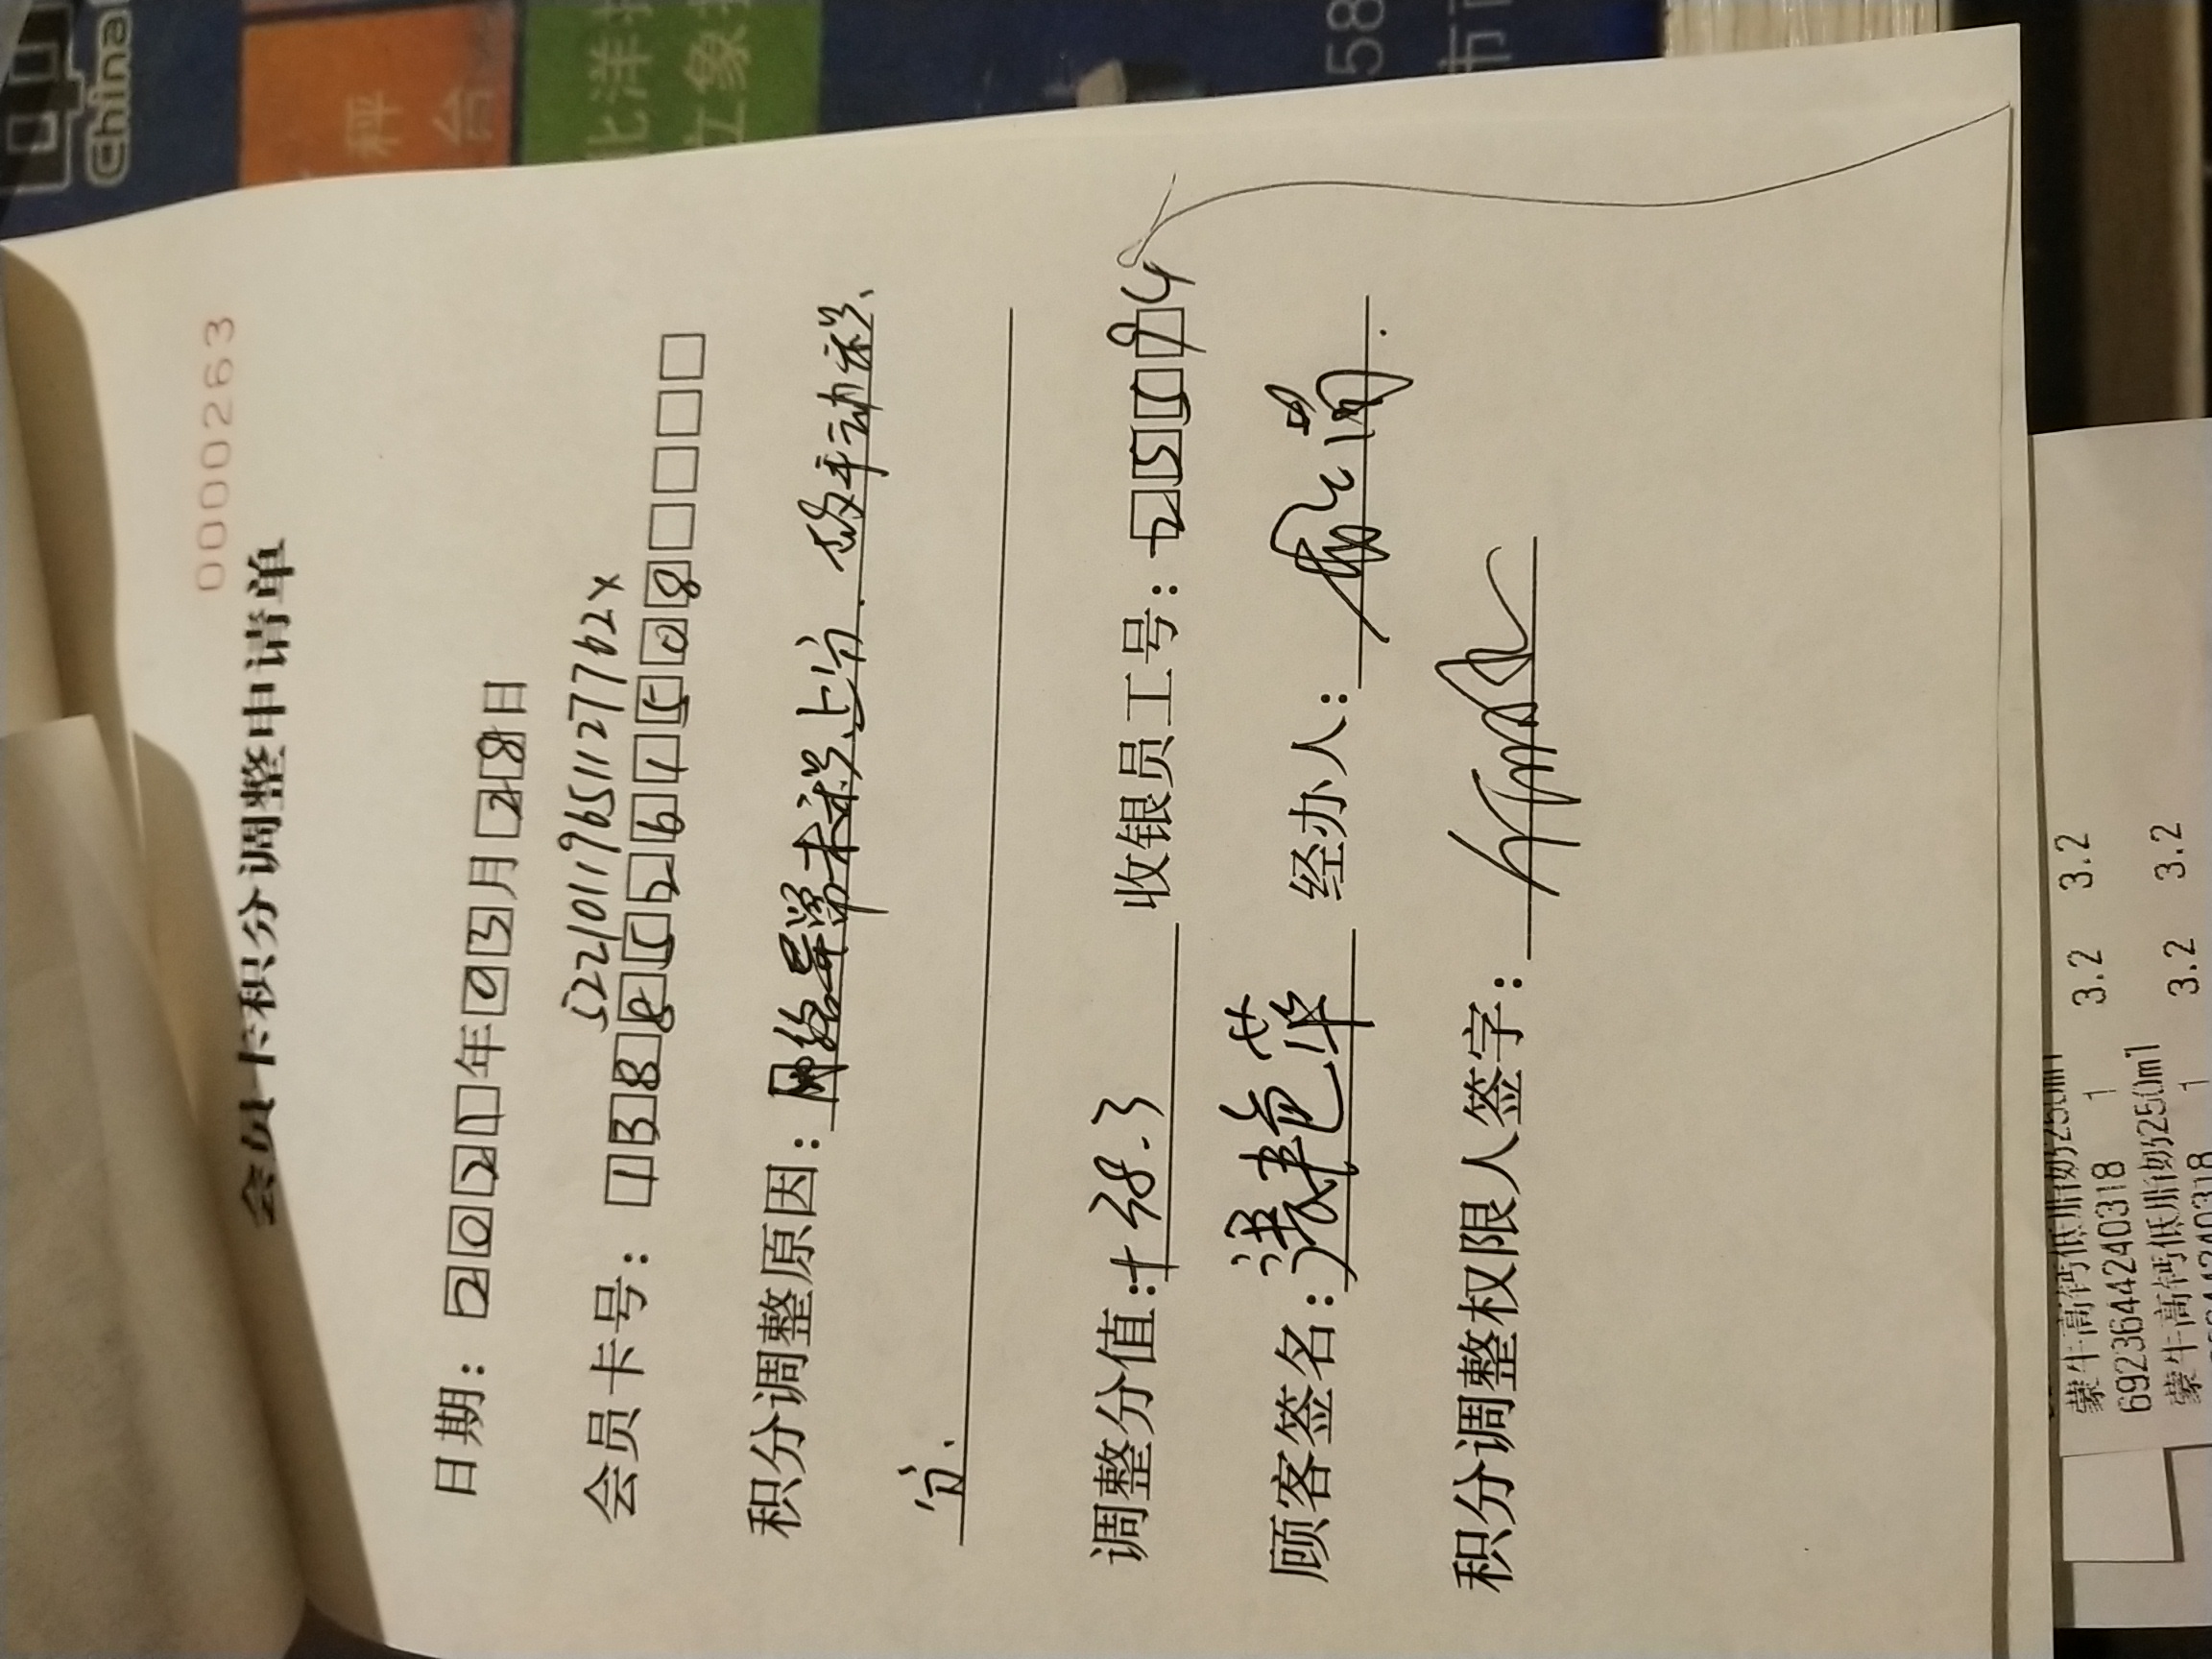 0000263
会员卡积分调整申请单
日期：2021年03月28日
52210119651127762X
会员卡号：13885261508
积分调整原因：网络异常未积上分.做手动积
分.
调整分值：+38.3 收银员工号：25594
顾客签名： 经办人：
积分调整权限人签字：
China
秤
台
北洋
立象
58
市
蒙牛高钙低脂奶250ml
6923644240318 1 3.2 3.2
蒙牛高钙低脂奶250ml
1 3.2 3.2